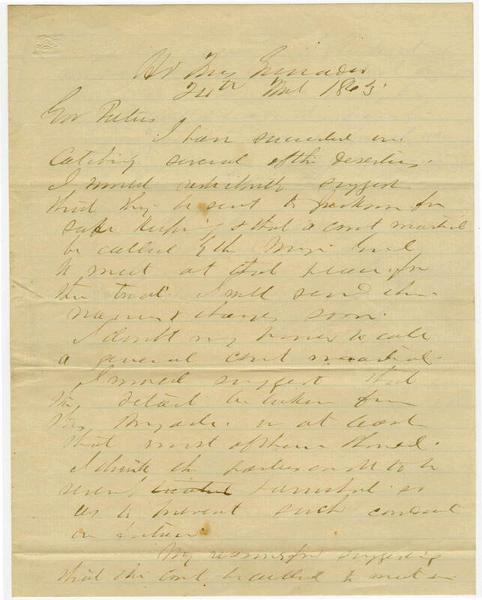 Hd Qrs Grenada
24th 1863
Gov Pettus
I have succeeded in
catching several of the deserters.
I would respectfully suggest
that they be sent to Jackson for
safe keeping & that a court martial
be called by the Maj Genl
to meet at that place for
the trial. I will send the
names & charges soon.
I doubt my power to call
a general court martial.
I would suggest that
the detail be taken from
this Brigade or at least
that most of them should.
I think the parties ought to be
severely treated & punished so
as to prevent such conduct
in future.
My reasons for suggesting
that the Court be called to meet in